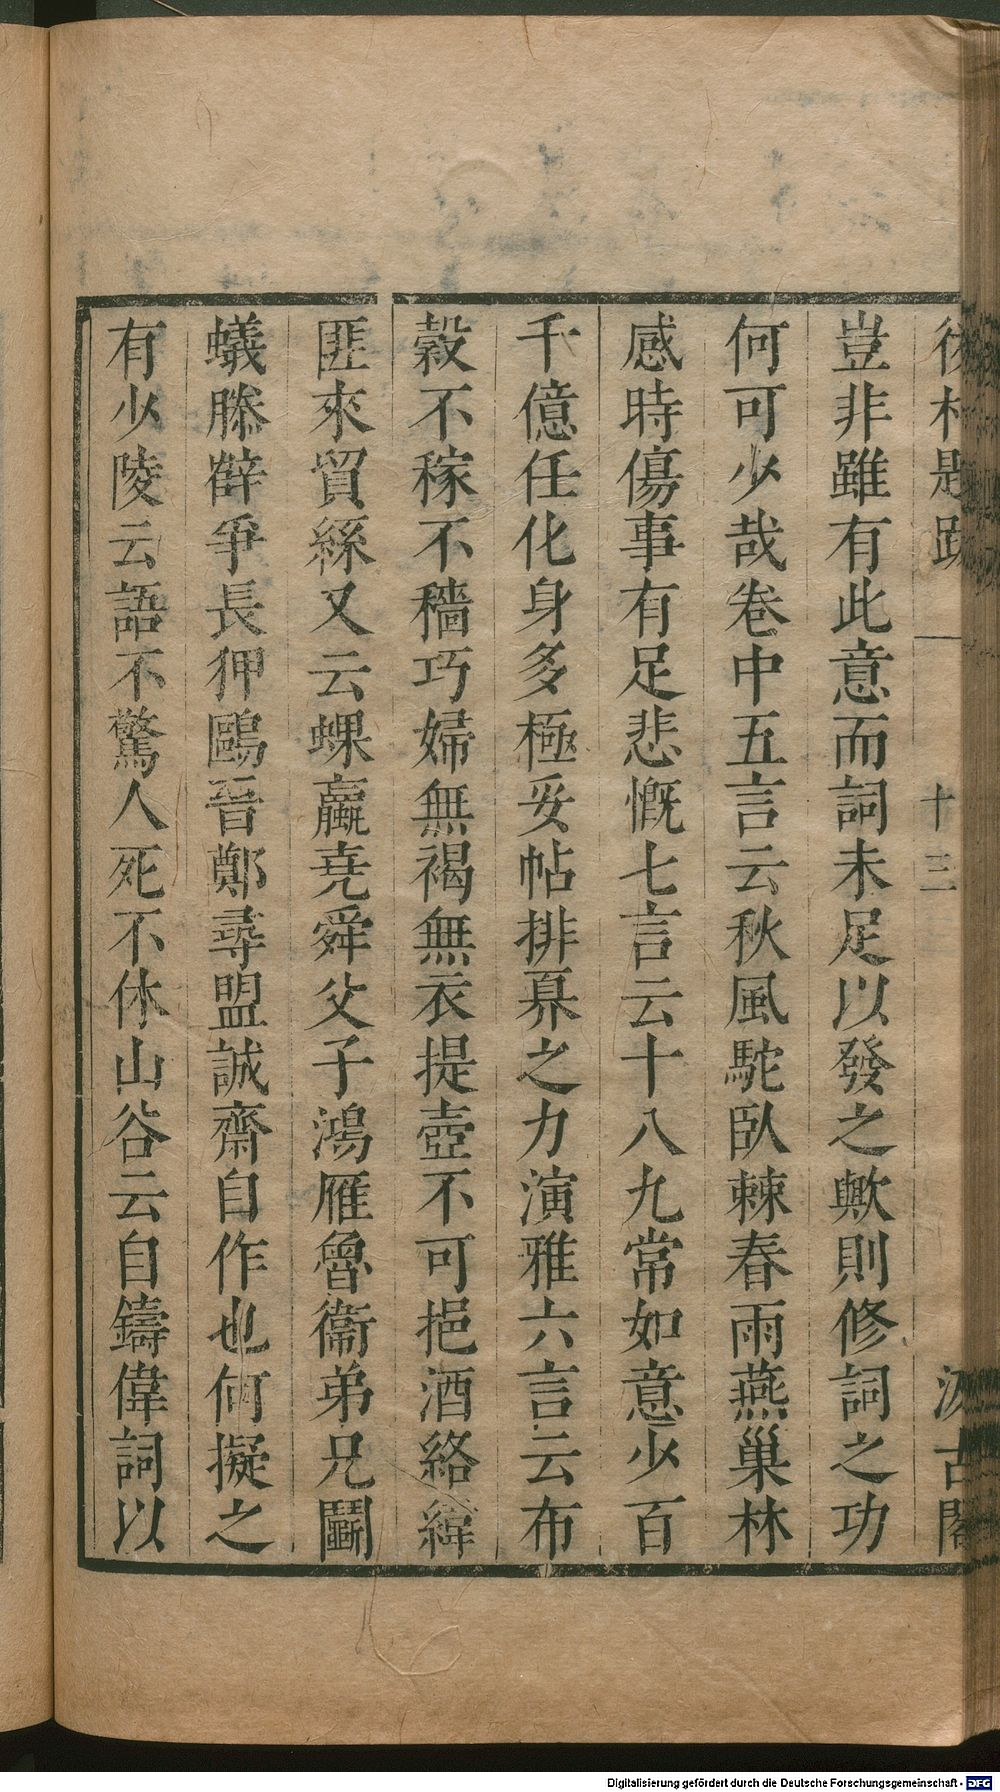 後村題跋 十三 汲古閣
豈非雖有此意而詞未足以發之歟則修詞之功
何可少哉卷中五言云秋風駝臥棘春雨燕巢林
感時傷事有足悲慨七言云十八九常如意少百
千億任化身多極妥帖排奡之力演雅六言云布
穀不稼不穡巧婦無褐無衣提壺不可挹酒絡緯
匪來貿絲又云蜾蠃堯舜父子鴻雁魯衞弟兄鬭
蟻滕薛爭長狎鷗晉鄭尋盟誠齋自作也何擬之
有少陵云語不驚人死不休山谷云自鑄偉詞以
Digitalisierung gefördert durch die Deutsche Forschungsgemeinschaft - DFG